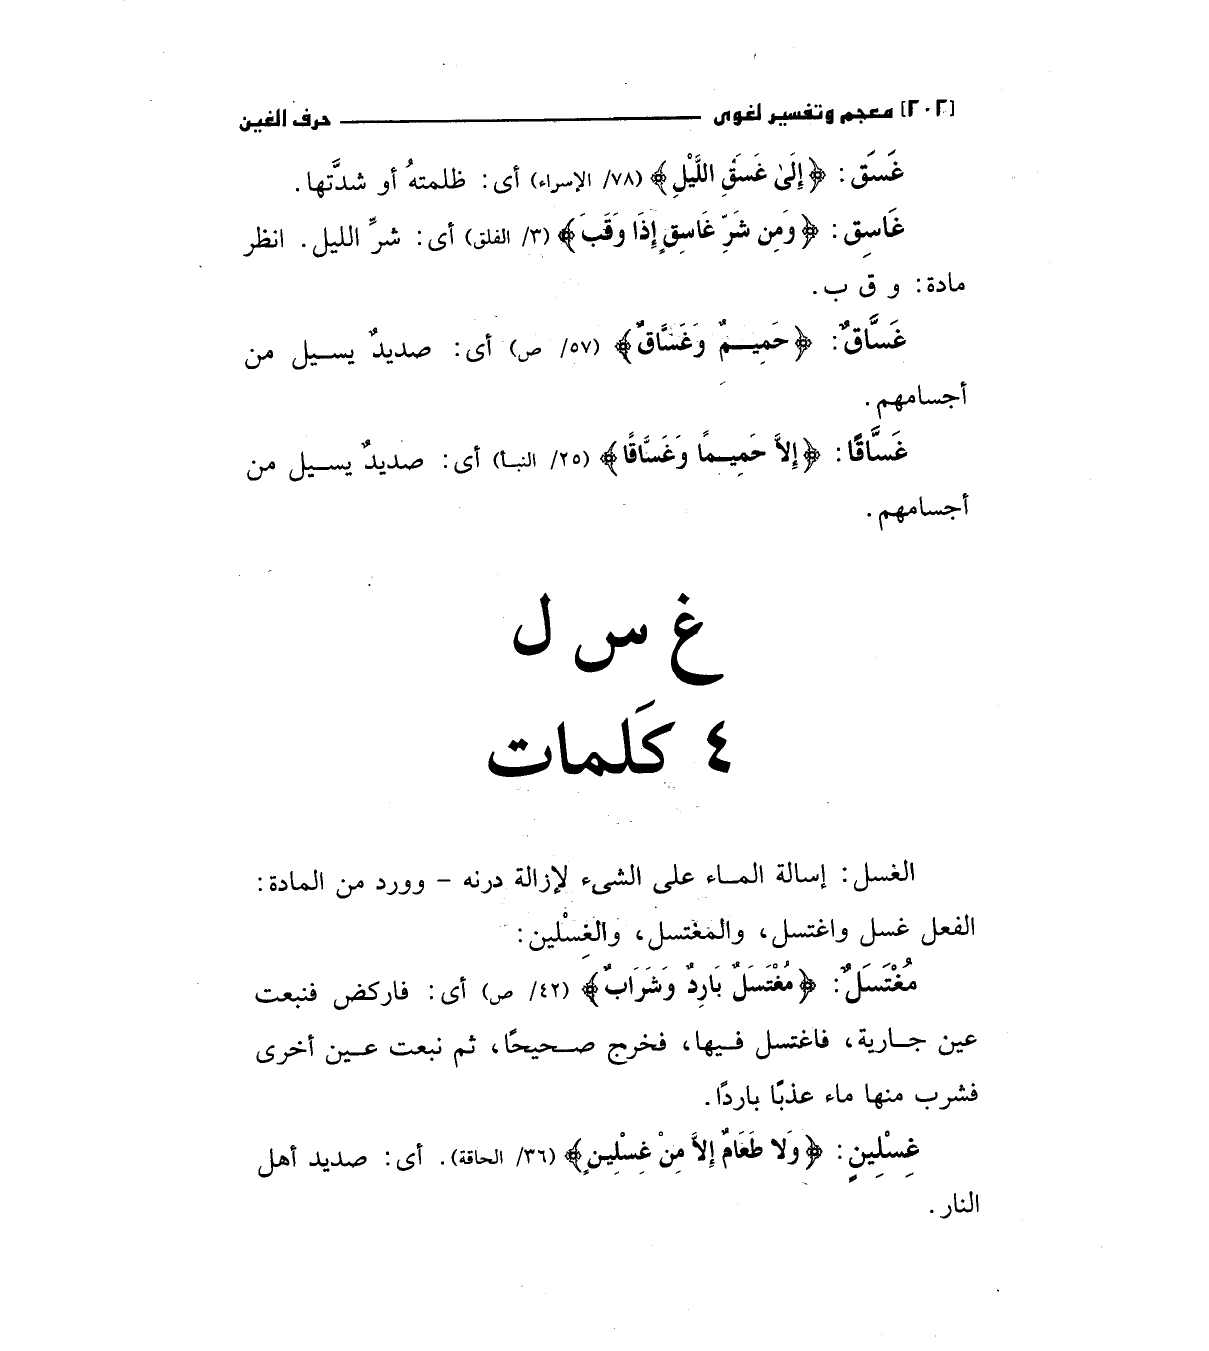 [٢٠٢] معجم وتفسير لغوى ــــــــــ حرف الغين
غَسَق: ﴿إِلَىٰ غَسَقِ اللَّيْلِ﴾ (٧٨/ الإسراء) أى: ظلمتهُ أو شدَّتها.
غَاسِق: ﴿وَمِن شَرِّ غَاسِقٍ إِذَا وَقَبَ﴾ (٣/ الفلق) أى: شرِّ الليل. انظر
مادة: و ق ب.
غَسَّاقٌ: ﴿حَمِيمٌ وَغَسَّاقٌ﴾ (٥٧/ ص) أى: صديدٌ يسيل من
أجسامهم.
غَسَّاقًا: ﴿إِلاَّ حَمِيمًا وَغَسَّاقًا﴾ (٢٥/ النبأ) أى: صديدٌ يسيل من
أجسامهم.
غ س ل
٤ كَلمات
الغسل: إسالة الماء على الشىء لإزالة درنه – وورد من المادة:
الفعل غسل واغتسل، والمغتسل، والغِسْلين:
مُغْتَسَلٌ: ﴿مُغْتَسَلٌ بَارِدٌ وَشَرَابٌ﴾ (٤٢/ ص) أى: فاركض فنبعت
عين جارية، فاغتسل فيها، فخرج صحيحًا، ثم نبعت عين أخرى
فشرب منها ماء عذبًا باردًا.
غِسْلِينٍ: ﴿وَلا طَعَامٌ إِلاَّ مِنْ غِسْلِينٍ﴾ (٣٦/ الحاقة). أى: صديد أهل
النار.